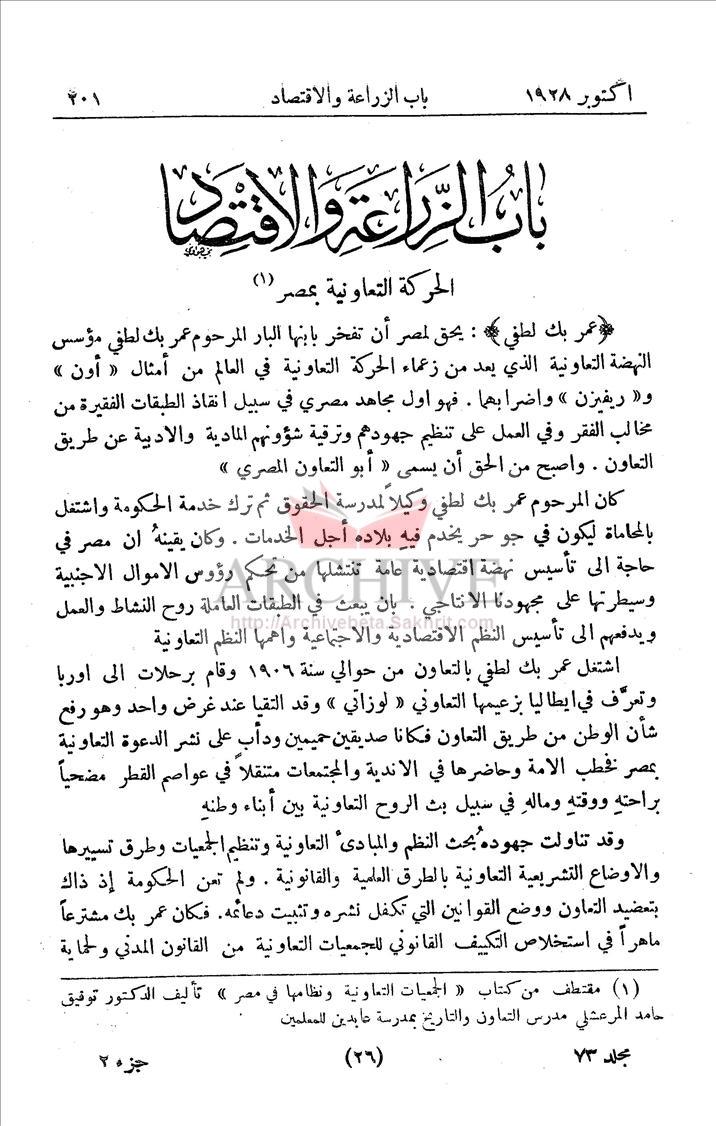 اكتوبر ١٩٢٨ باب الزراعة والاقتصاد ٢٠١
بابُ الزِّرَاعَةِ وَالاِقْتِصَادِ
الحركة التعاونية بمصر (١)
﴿عمر بك لطفي﴾ : يحق لمصر أن تفخر بابنها البار المرحوم عمر بك لطفي مؤسس
النهضة التعاونية الذي يعد من زعماء الحركة التعاونية في العالم من أمثال « أون »
و« ريفيزن » واضرابهما . فهو اول مجاهد مصري في سبيل انقاذ الطبقات الفقيرة من
مخالب الفقر وفي العمل على تنظيم جهودهم وترقية شؤونهم المادية والادبية عن طريق
التعاون . واصبح من الحق أن يسمى « أبو التعاون المصري »
كان المرحوم عمر بك لطفي وكيلاً لمدرسة الحقوق ثم ترك خدمة الحكومة واشتغل
بالمحاماة ليكون في جو حر يخدم فيهِ بلاده أجل الخدمات . وكان يقينهُ ان مصر في
حاجة الى تأسيس نهضة اقتصادية عامة تنتشلها من تحكم رؤوس الاموال الاجنبية
وسيطرتها على مجهودنا الانتاجي . بان يبعث في الطبقات العاملة روح النشاط والعمل
ويدفعهم الى تأسيس النظم الاقتصادية والاجتماعية واهمها النظم التعاونية
اشتغل عمر بك لطفي بالتعاون من حوالي سنة ١٩٠٦ وقام برحلات الى اوربا
وتعرَّف في ايطاليا بزعيمها التعاوني « لوزاتي » وقد التقيا عند غرض واحد وهو رفع
شأن الوطن من طريق التعاون فكانا صديقين حميمين ودأب على نشر الدعوة التعاونية
بمصر فخطب الامة وحاضرها في الاندية والمجتمعات متنقلاً في عواصم القطر مضحياً
براحتهِ ووقتهِ ومالهِ في سبيل بث الروح التعاونية بين أبناء وطنهِ
وقد تناولت جهودهُ بحث النظم والمبادئ التعاونية وتنظيم الجمعيات وطرق تسييرها
والاوضاع التشريعية التعاونية بالطرق العلمية والقانونية . ولم تعن الحكومة إذ ذاك
بتعضيد التعاون ووضع القوانين التي تكفل نشره وتثبيت دعائمه . فكان عمر بك مشترعاً
ماهراً في استخلاص التكييف القانوني للجمعيات التعاونية من القانون المدني ولحماية
(١) مقتطف من كتاب « الجمعيات التعاونية ونظامها في مصر » تأليف الدكتور توفيق
حامد المرعشلي مدرس التعاون والتاريخ بمدرسة عابدين للمعلمين
مجلد ٧٣ (٢٦) جزء ٢
ARCHIVE
http://Archivebeta.Sakhrit.com